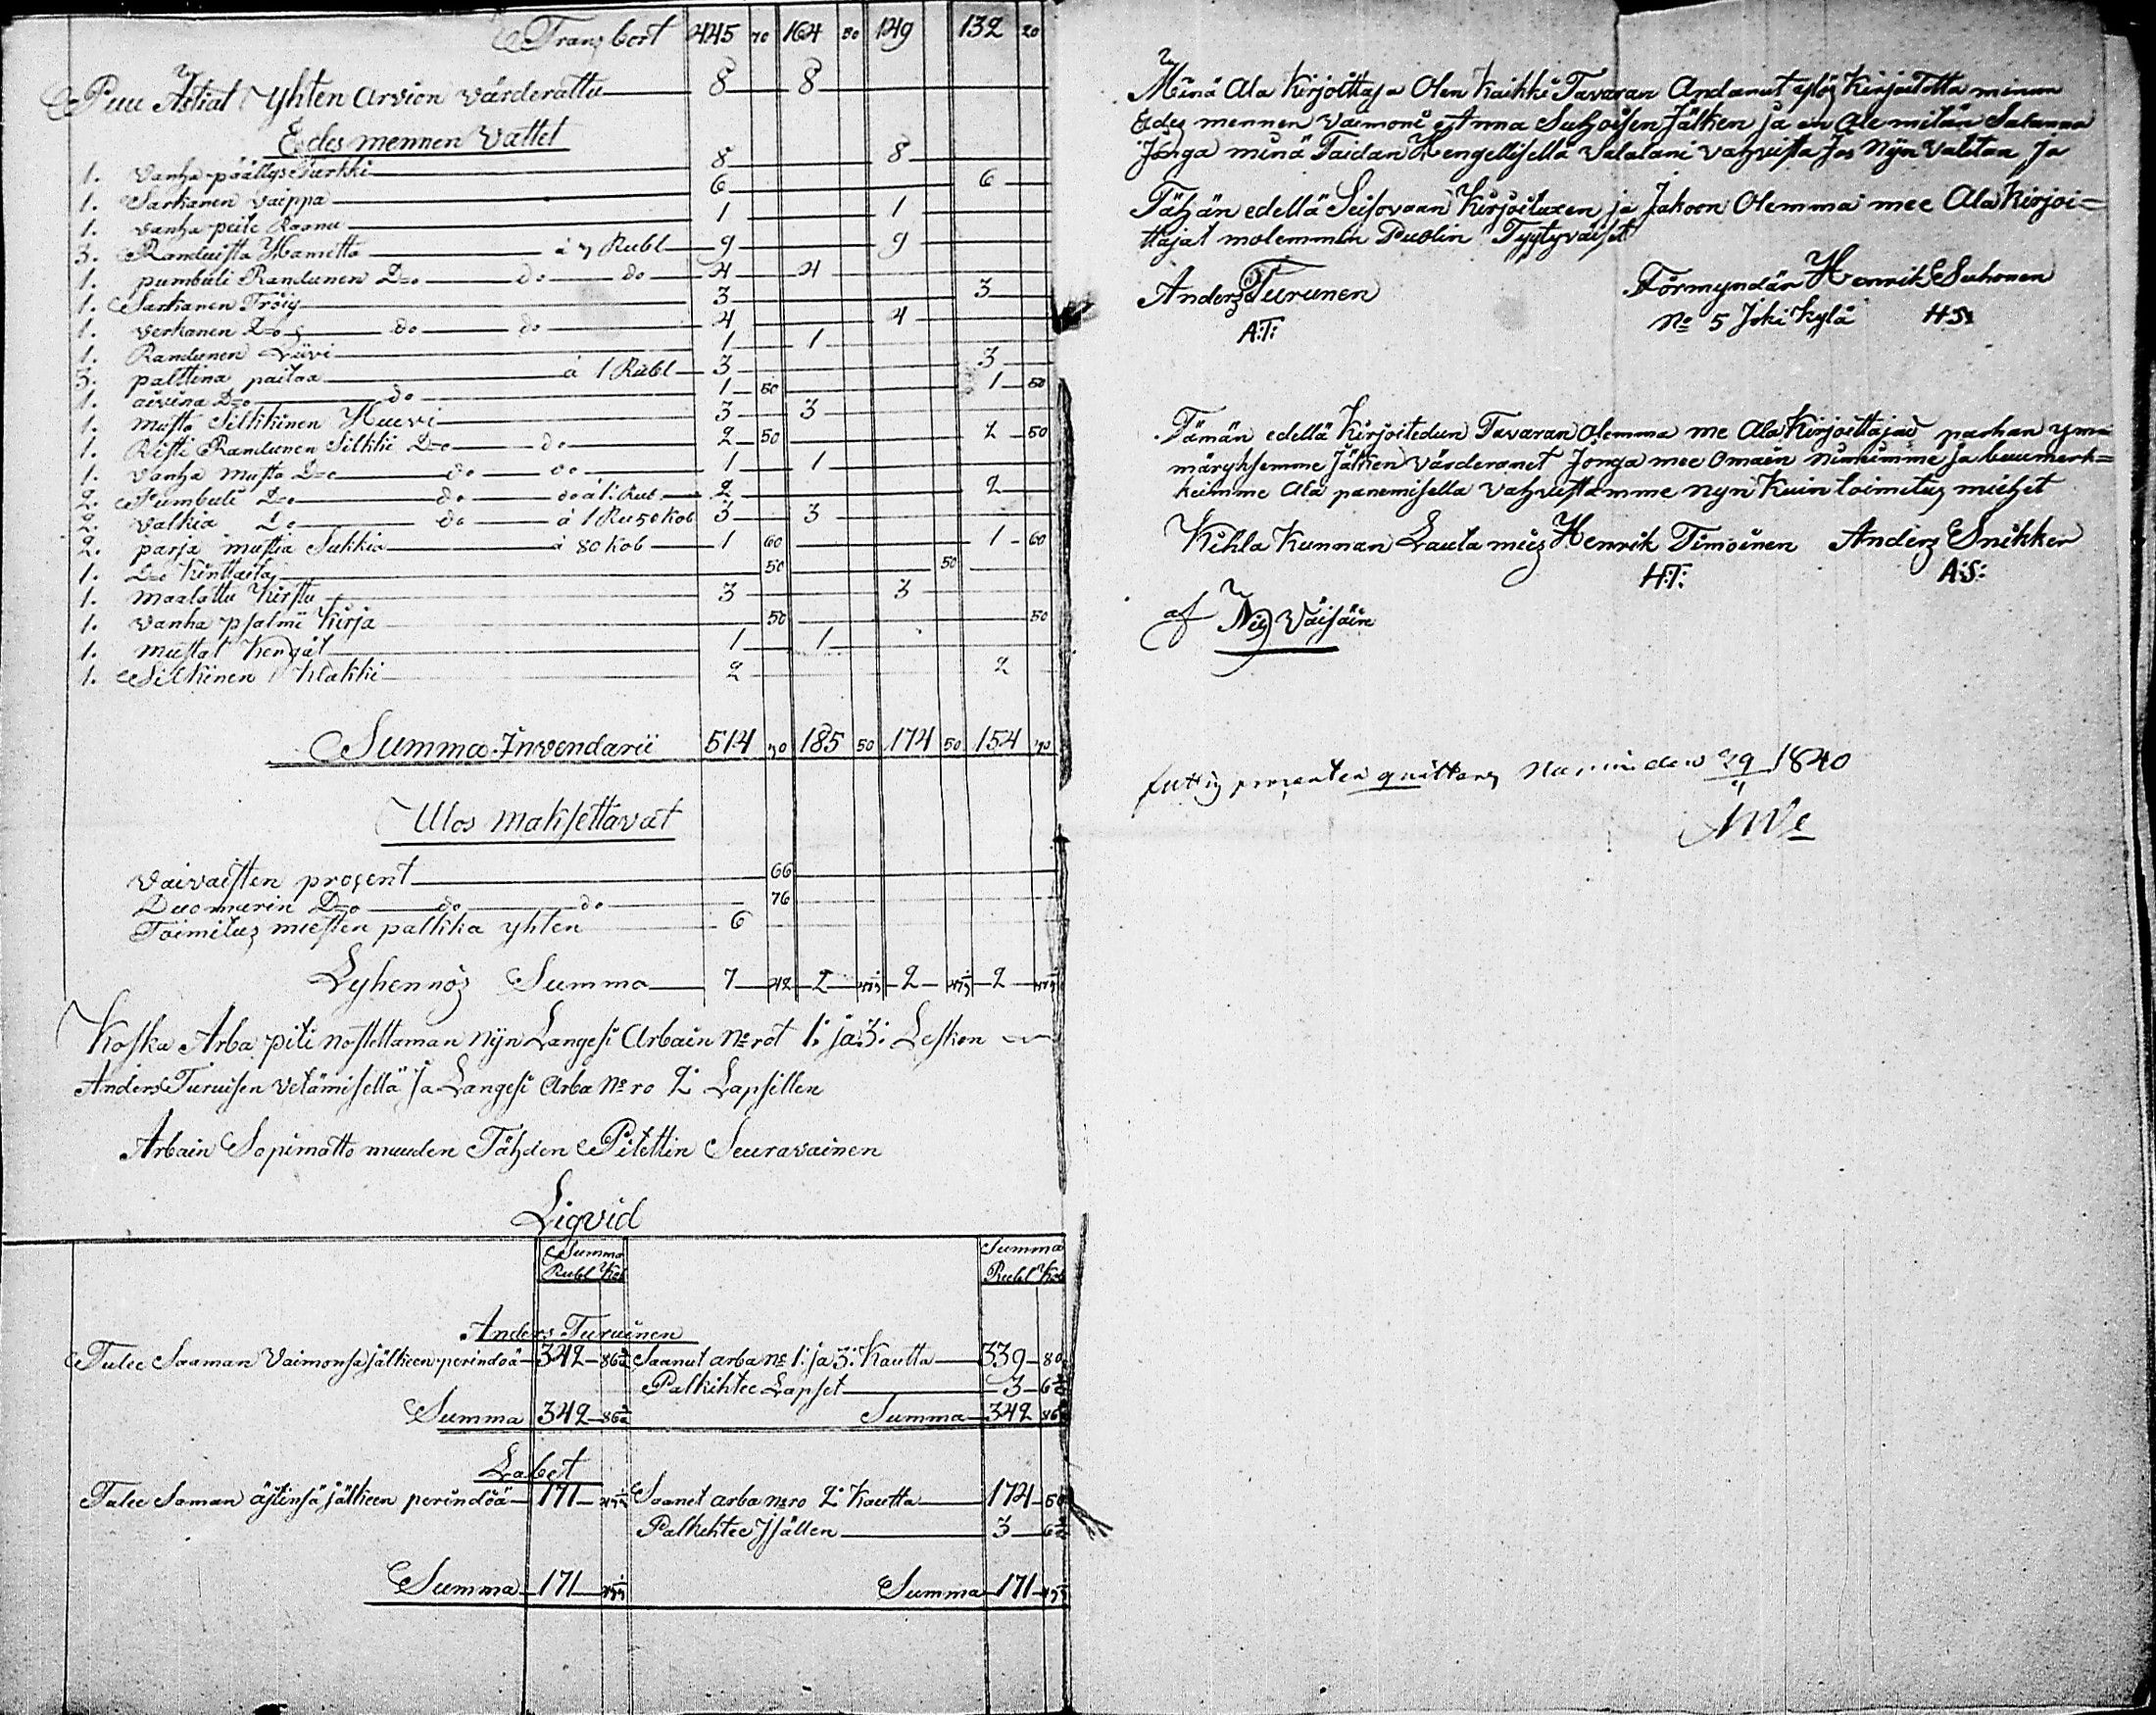 Transbort 445 70 164 50 149 132 20
Puu Astiat Yhten arvion värderattu 8 8
Edes mennen Vattet
1. Vanha päällys Turkki 8 8
1. Sarkanen vaippa 6 6
1. Vanha peite Raanu 1 1
3. Randuista Hametta à 3 Rubl 9 9
1. pumbuli Randunen D=o do do 4 4
1. Sarkanen Tröiy 3 3
1. Verkanen D=o do do 4 4
1. Randunen Liivi 1 1
3. palttina paitaa à 1 Rubl 3 3
1. aivina D=o do 1 50 1 50
1. musta Silkkinen Huovi 3 3
1. Risti Randunen Silkki D=o do 2 50 2 50
1. Vanha musta D=o do do 1 1
2. Pumbuli D=o do do à 1: Rub 2 2
2. Valkia D=o do à 1 Ru 50 Kob 3 3
2. parja mustia Sukkia à 80 Kob 1 60 1 60
1. D=o Kinttaita 50 50
1. maalattu Kirstu 3 3
1. Vanha psalmi Kirja 50 50
1. mustat Kengät 1 1
1. Silkinen Klakki 2 2
Summa Invendarii 514 70 185 50 174 50 154 70
Ulos maksettavat
Vaivaisten prosent 66
Duomarin D=o do do 76
Toimitus miesten palkka yhten 6
Lyhennös Summa 7 42 2 2 2
Koska Arba piti nostettaman nijn Langesi Arbain N:rot 1: ja 3: Lesken
Anders Turuisen vetämisellä ja Langesi Arba N:ro 2: Lapsillen
Arbain Sopimatto muuden Tähden Pitettin Seuravainen
Liqvid
Summa Summa
Rubl Kob Rubl Kob
Anders Turuinen
Tulee Saaman Vaimonsa jälkeen perindöä 342 86 Saanut arba N: 1: ja 3: Kautta 339 80
Palkihtee Lapset 3 6
Summa 342 86 Summa 342 86
Labet
Tulee Saman äitinsä jälkeen perindöä 171 Saanet arba N:ro 2: Kautta 174 50
Palkihtee Isällen 3 6
Summa 171 Summa 171
Minä Ala Kirjoittaja Olen Kaikki Tavaran Andanut ylös Kirjoitetta minun
Edes mennen Vaimoni Anna Suhoisen Jälken ja en Ole mitän Salanna
Jonga minä Taidan Hengellisellä Valalani vahvista Jos Nijn Vaditan Ja
Tähän edellä Seisovaan Kirjoituxen ja Jakoon Olemma mee Ala Kirjoi=
ttajat molemmin Puolin Tyytyväiset
Anders Turunen Förmyndäri Henrik Suhonen
A:T: No 5 Joki Kylä H:S:
Tämän edellä Kirjoitedun Tavaran Olemma me Ala Kirjoittajad parhan ymä
märyksemme Jälken Värderanet Jonga mee Omain Nimeimme ja buumerk=
keimme Ala panemisella vahvistamme nyn Kuin toimitus miehet
Kihla Kunnan Lauta mies Henrik Timoinen Anders Snikker
H:T: A:S:
af Nils Väisäin
fattig prosenten quitteras 29 1840